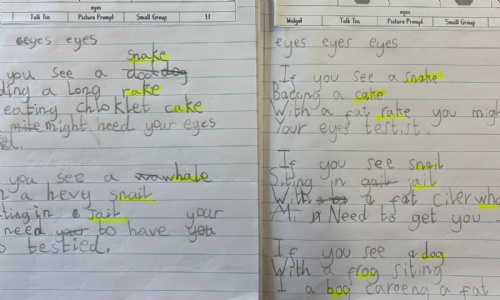 eyes
Talk Tin Picture Prompt Small Group 1:1
eyes eyes
snake
you see a dog
ding a Long rake
eating chloklet cake
might need your eyes
you see a whale
a hevy snail
ting in a jail your
need your to have you
testied.
eyes
Widget Talk Tin Picture Prompt Small Group
eyes eyes eyes
If you see a snake
a cake
With a fat rake you migh
Your eyes testist.
If you see snail
Siting in gail jail
With a fat cilerwha
Need to get you
If you see a dog
With a frog siting
I a bog careeng a fat